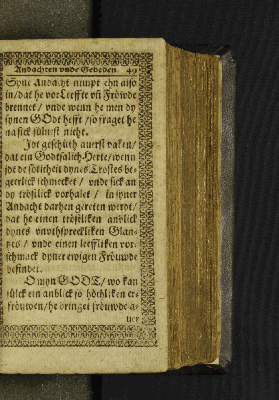 Andachten vnde Gebeden. 49
Syne Andacht nimpt ehn also
in / dat he vor Leeffte vñ Fröwde
brennet / vnde wenn he men dy
synen GOdt hefft / so fraget he
na sick sülvest nicht.
Jdt geschüth auerst vaken /
dat ein Godtsalich Herte / wenn
jdt de söticheit dynes Trostes be-
geerlick schmecket / vnde sick an
dy tröstlick vorhalet / in syner
Andacht darhen gereten werdt /
dat he einen tröstliken anblick
dynes vnuthspreckliken Glan-
tzes / vnde einen leeffliken vor-
schmack dyner ewigen Fröuwde
befindet.
O myn GODT / wo kan
sülck ein anblick so höchliken er-
fröuwen / he bringet fröuwde a-
uer